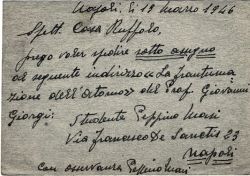 Napoli, li 19 marzo 1946
Spett. Casa Ruffolo,
prego voler spedire sotto assegno
al seguente indirizzo: "La frantuma
zione dell'atomo" del Prof. Giovanni
Giorgi:
Studente Peppino Masi
Via Francesco De Sanctis 23
Napoli
con osservanza Peppino Masi